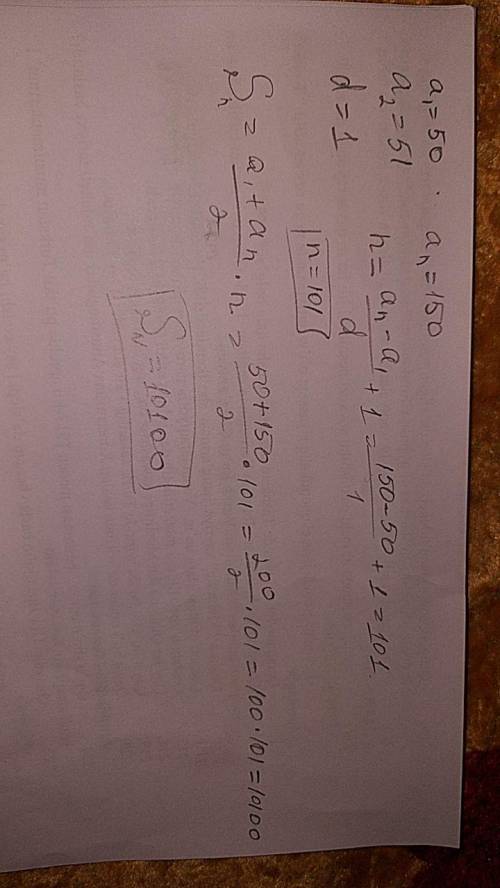 a₁=50 · aₙ=150
a₂=51
d=1
n = (aₙ-a₁)/d + 1 = (150-50)/1 + 1 = 101.
n=101
Sₙ = (a₁+aₙ)/2 · n = (50+150)/2 · 101 = 200/2 · 101 = 100·101 = 10100
S_N = 10100